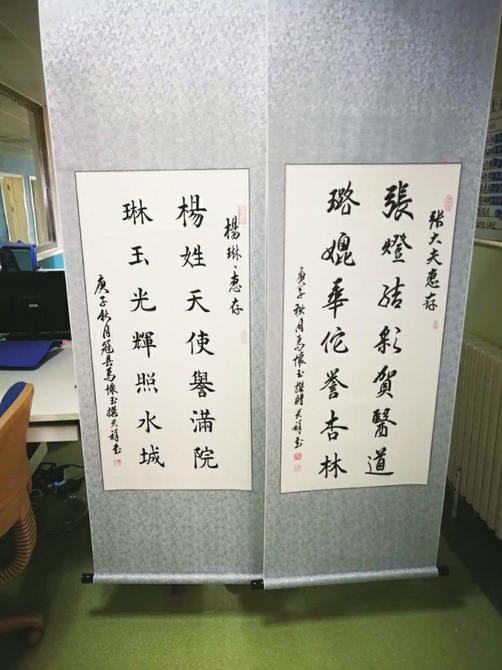 張大夫惠存
張燈結彩賀醫道
璐媲華佗誉杏林
庚子秋月馬懷玉撰贈英祥書
楊琳惠存
楊姓天使譽滿院
琳玉光輝照水城
庚子秋月冠县馬懷玉撰英祥書